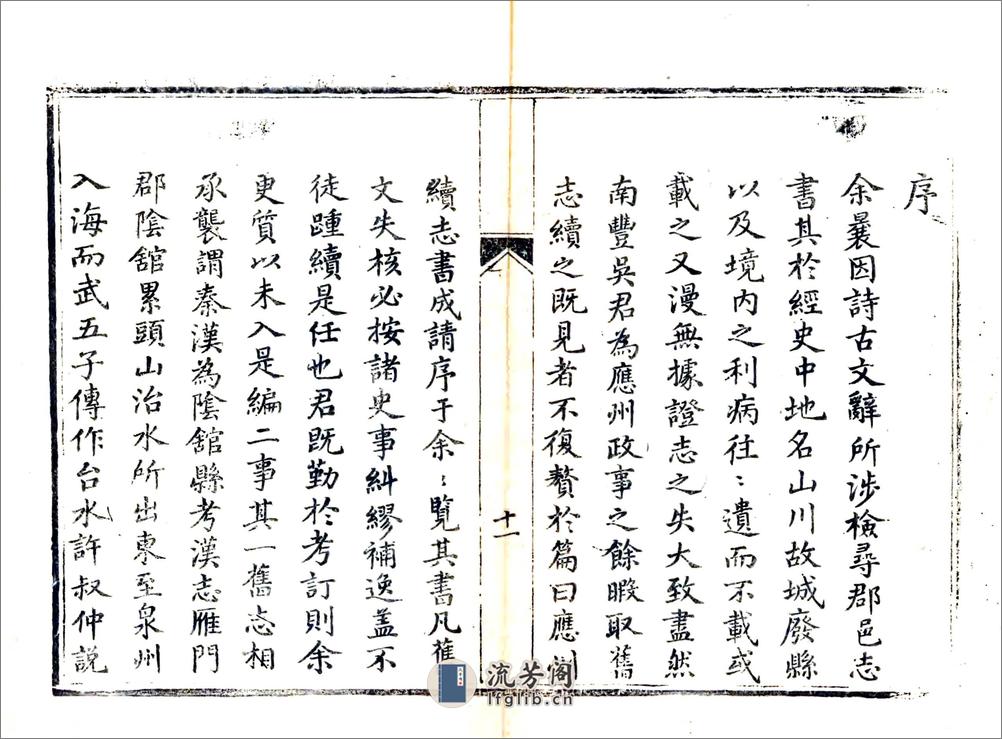 序
余曩因詩古文辭所涉檢尋郡邑志
書其於經史中地名山川故城廢縣
以及境内之利病往〻遺而不載或
載之又漫無據證志之失大致盡然
南豐吳君為應州政事之餘暇取舊
志續之既見者不復贅於篇曰應州
續志書成請序于余〻覽其書凡舊
文失核必按諸史事糾繆補逸盖不
徒踵續是任也君既勤於考訂則余
更質以未入是編二事其一舊志相
承襲謂秦漢為陰館縣考漢志雁門
郡陰館累頭山治水所出東至泉州
入海而武五子傳作台水許叔仲説
十一
流芳阁
lfglib.cn